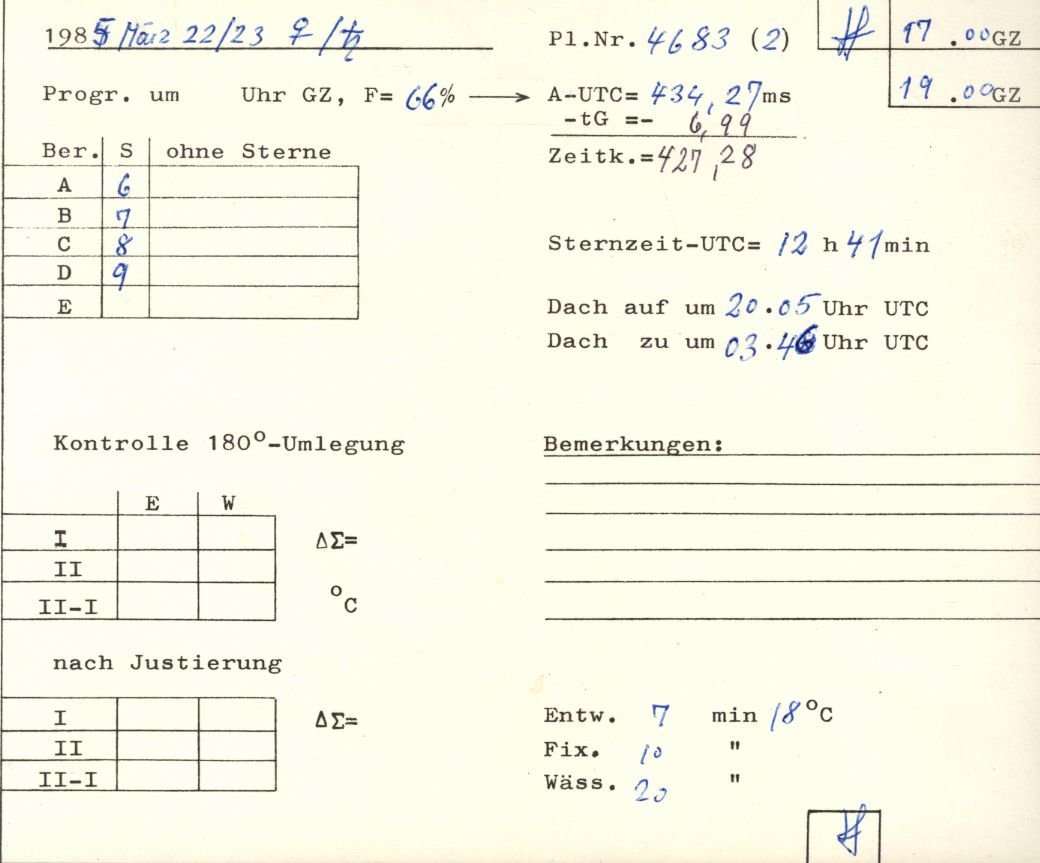 1985 März 22/23 ♀/♄ Pl.Nr. 4683 (2) 17.00GZ
Progr. um Uhr GZ, F= 66% → A-UTC= 434,27ms 19.00GZ
-tG =- 6,99
Ber. S ohne Sterne Zeitk.=427,28
A 6
B 7
C 8 Sternzeit-UTC= 12 h 41min
D 9
E Dach auf um 20.05 Uhr UTC
Dach zu um 03.46 Uhr UTC
Kontrolle 180°-Umlegung Bemerkungen:
E W
I ΔΣ=
II
II-I °C
nach Justierung
I ΔΣ= Entw. 7 min 18°C
II Fix. 10 "
II-I Wäss. 20 "